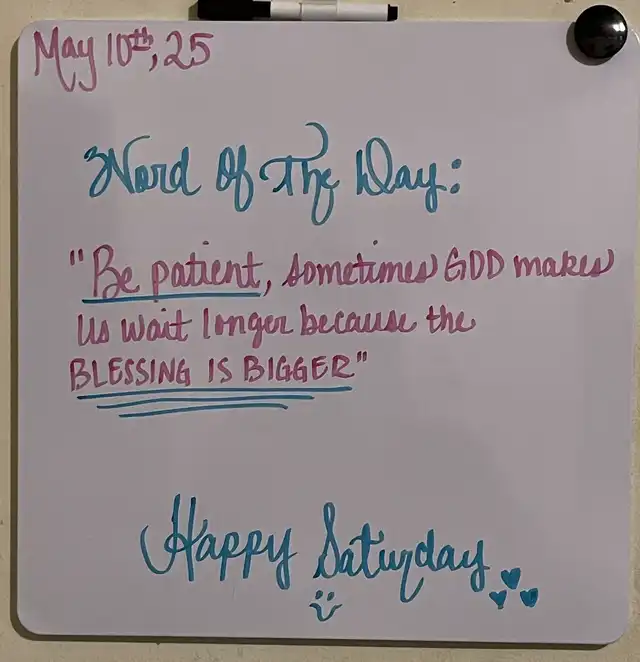 May 10th, 25
Word Of The Day:
"Be patient, sometimes GOD makes
us wait longer because the
BLESSING IS BIGGER"
Happy Saturday